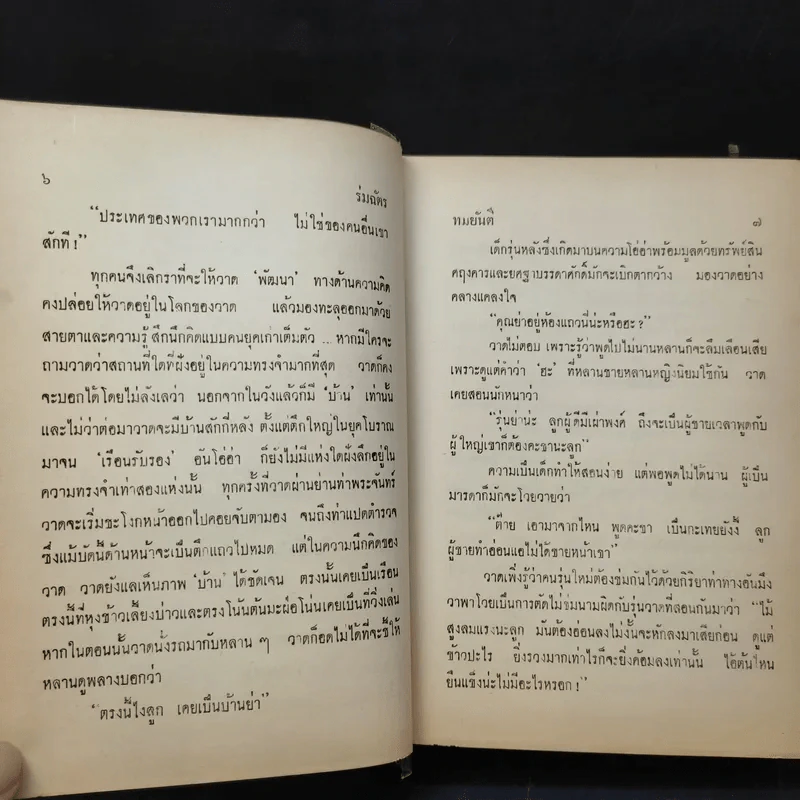 ๖
ร่มฉัตร
“ประเทศของพวกเรามากกว่า ไม่ใช่ของคนอื่นเขา
สักที !”
ทุกคนจึงเลิกราที่จะให้วาด ‘พัฒนา’ ทางด้านความคิด
คงปล่อยให้วาดอยู่ในโลกของวาด แล้วมองทะลุออกมาด้วย
สายตาและความรู้สึกนึกคิดแบบคนยุคเก่าเต็มตัว ... หากมีใครจะ
ถามวาดว่าสถานที่ใดที่ฝังอยู่ในความทรงจำมากที่สุด วาดก็คง
จะบอกได้โดยไม่ลังเลว่า นอกจากในวังแล้วก็มี ‘บ้าน’ เท่านั้น
และไม่ว่าต่อมาวาดจะมีบ้านสักกี่หลัง ตั้งแต่ตึกใหญ่ในยุคโบราณ
มาจน ‘เรือนรับรอง’ อันโอ่อ่า ก็ยังไม่มีแห่งใดฝังลึกอยู่ใน
ความทรงจำเท่าสองแห่งนั้น ทุกครั้งที่วาดผ่านย่านท่าพระจันทร์
วาดจะเริ่มชะโงกหน้าออกไปคอยจับตามอง จนถึงท่าแปดตำรวจ
ซึ่งแม้บัดนี้ด้านหน้าจะเป็นตึกแถวไปหมด แต่ในความนึกคิดของ
วาด วาดยังแลเห็นภาพ ‘บ้าน’ ได้ชัดเจน ตรงนั้นเคยเป็นเรือน
ตรงนี้ที่หุงข้าวเลี้ยงบ่าวและตรงโน้นต้นมะผ่อโน่นเคยเป็นที่วิ่งเล่น
หากในตอนนั้นวาดนั่งรถมากับหลาน ๆ วาดก็อดไม่ได้ที่จะชี้ให้
หลานดูพลางบอกว่า
“ตรงนี้ไงลูก เคยเป็นบ้านย่า”
ทมยันตี
๗
เด็กรุ่นหลังซึ่งเกิดมาบนความโอ่อ่าพร้อมมูลด้วยทรัพย์สิน
ศฤงคารและยศฐาบรรดาศักดิ์มักจะเบิกตากว้าง มองวาดอย่าง
คลางแคลงใจ
“คุณย่าอยู่ห้องแถวนี่น่ะหรือฮะ ?”
วาดไม่ตอบ เพราะรู้ว่าพูดไปไม่นานหลานก็จะลืมเลือนเสีย
เพราะดูแต่คำว่า ‘ฮะ’ ที่หลานชายหลานหญิงนิยมใช้กัน วาด
เคยสอนนักหนาว่า
“รุ่นย่าน่ะ ลูกผู้ดีมีเผ่าพงศ์ ถึงจะเป็นผู้ชายเวลาพูดกับ
ผู้ใหญ่เขาก็ต้องคะขานะลูก”
ความเป็นเด็กทำให้สอนง่าย แต่พอพูดไม่ได้นาน ผู้เป็น
มารดาก็มักจะโวยวายว่า
“ต๊าย เอามาจากไหน พูดคะขา เป็นกะเทยยังงี้ ลูก
ผู้ชายทำอ่อนแอไม่ได้ขายหน้าเขา”
วาดเพิ่งรู้ว่าคนรุ่นใหม่ต้องข่มกันไว้ด้วยกิริยาท่าทางอันมึง
วาพาโวยเป็นการตัดไม้ข่มนามผิดกับรุ่นวาดที่สอนกันมาว่า “ไม้
สูงลมแรงนะลูก มันต้องอ่อนลงไม่งั้นจะหักลงมาเสียก่อน ดูแต่
ข้าวปะไร ยิ่งรวงมากเท่าไรก็จะยิ่งค้อมลงเท่านั้น ไอ้ต้นไหน
ยืนแข็งน่ะไม่มีอะไรหรอก !”